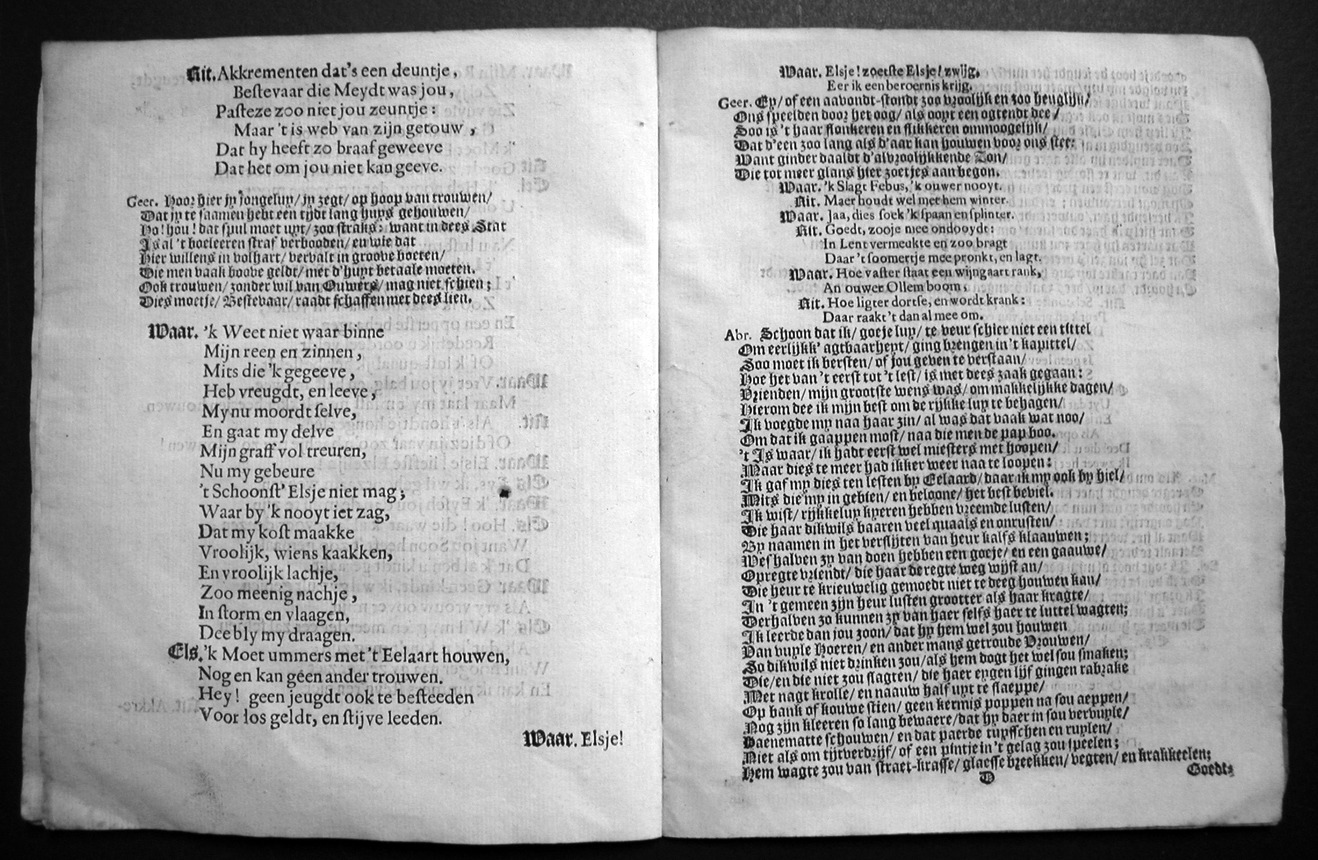 Rit. Akkrementen dat's een deuntje,
Bestevaar die Meydt was jou,
Pasteze zoo niet jou zeuntje:
Maar 't is web van zijn getouw,
Dat hy heeft zo braaf geweeve
Dat het om jou niet kan geeve.
Geer. Hoor hier jy jongeluy/ jy zegt/ op hoop van trouwen/
Dat jy te saamen hebt een tijdt lang huys gehouwen/
Ho! hou! dat spul moet uyt/ zoo straks: want in dees Stat
Is al 't boeleeren straf verbooden/ en wie dat
Hier willens in volhart/ vervalt in groove boeten/
Die men vaak boove geldt/ met d'huyt betaale moeten.
Ook trouwen/ zonder wil van Ouwers/ mag niet schien;
Dies moetje/ Bestevaar/ raadt schaffen met dees lien.
Waar. 'k Weet niet waar binne
Mijn reen en zinnen,
Mits die 'k gegeeve,
Heb vreugdt, en leeve,
My nu moordt selve,
En gaat my delve
Mijn graff vol treuren,
Nu my gebeure
't Schoonst' Elsje niet mag;
Waar by 'k nooyt iet zag,
Dat my kost maakke
Vroolijk, wiens kaakken,
En vroolijk lachje,
Zoo meenig nachje,
In storm en vlaagen,
Dee bly my draagen.
Els. 'k Moet ummers met 't Eelaart houwen,
Nog en kan géen ander trouwen.
Hey! geen jeugdt ook te besteeden
Voor los geldt, en stijve leeden.
Waar. Elsje!
Waar. Elsje! zoetste Elsje! zwijg,
Eer ik een beroernis krijg.
Geer. Ey/ of een aavondt-stondt zoo vroolijk en zoo heuglijk/
Ons speelden door het oog/ als ooyt een ogtendt dee/
Soo is 't haar flonkeren en flikkeren ommoogelijk/
Dat d'een zoo lang als d'aar kan houwen voor ons stee:
Want ginder daaldt d'alvroolijkkende Zon/
Die tot meer glans hier zoetjes aan begon.
Waar. 'k Slagt Febus, 'k ouwer nooyt.
Rit. Maer houdt wel mee hem winter.
Waar. Jaa, dies soek 'k spaan en splinter.
Rit. Goedt, zooje mee ondooydt:
'In Lent vermeukte en zoo bragt
Daar 't soomertje mee pronkt, en lagt.
Waar. Hoe vaster staat een wijngaart rank,
An ouwer Ollem boom,
Rit. Hoe ligter dortse, en wordt krank:
Daar raakt 't dan al mee om.
Abr. Schoon dat ik/ goeje luy/ te veur schier niet een tittel
Om eerlijkk' agtbaarheyt/ ging brengen in 't kapittel/
Soo moet ik bersten/ of jou geven te verstaan/
Hoe het van 't eerst tot 't lest/ is met dees zaak gegaan:
Vrienden/ mijn grootste wens was/ om makkelijkke dagen/
Hierom dee ik mijn best om de rijkke luy te behagen/
Ik voegde my naa haar zin/ al was dat vaak wat noo/
Om dat ik gaappen most/ naa die men de pap boo.
't Is waar/ ik hadt eerst wel miesters met hoopen/
Maar dies te meer had ikker weer naa te loopen:
Ik gaf my dies ten lesten by Eelaard/ daar ik my ook by hiel/
Mits die my in gebien/ en beloone/ het best beviel.
Ik wist/ rijkkelup kyeren hebben vreemde lusten/
Die haar dikwils baaren veel quaals en onrusten/
By naamen in het verslijten van heur kalfs klaauwen;
Weshalven zy van doen hebben een goeje/ en een gaauwe/
Opregte vriendt/ die haar de regte weg wijst an/
Die heur te krieuwelig gemoedt niet te deeg houwen kan/
In 't gemeen zijn heur lusten grootter als haar kragte/
Derhalven zo kunnen zy van haer selfs haer te luttel wagten;
Ik leerde dan jou zoon/ dat hy hem wel zou houwen
Van vuyle Hoeren/ en ander mans getroude Vrouwen/
So dikwils niet drinken zou/ als hem dogt het wel sou smaken;
Die/ en die niet zou slagten/ die haer eygen lijf gingen rabrake
Met nagt krolle/ en naauw half uyt te slaeppe/
Op bank of kouwe stien/ geen kermis poppen na sou aeppen/
Nog zijn kleeren so lang bewaere/ dat hy daer in sou vervuyle/
Daenematte schouwen/ en dat paerde tuysschen en ruylen/
Niet als om tijtverdrijf/ of een pintje in 't gelag zou speelen;
Hem wagte zou van straet-krasse/ glaesse breekken/ vegten/ en krakkeelen;
D
Goedt: